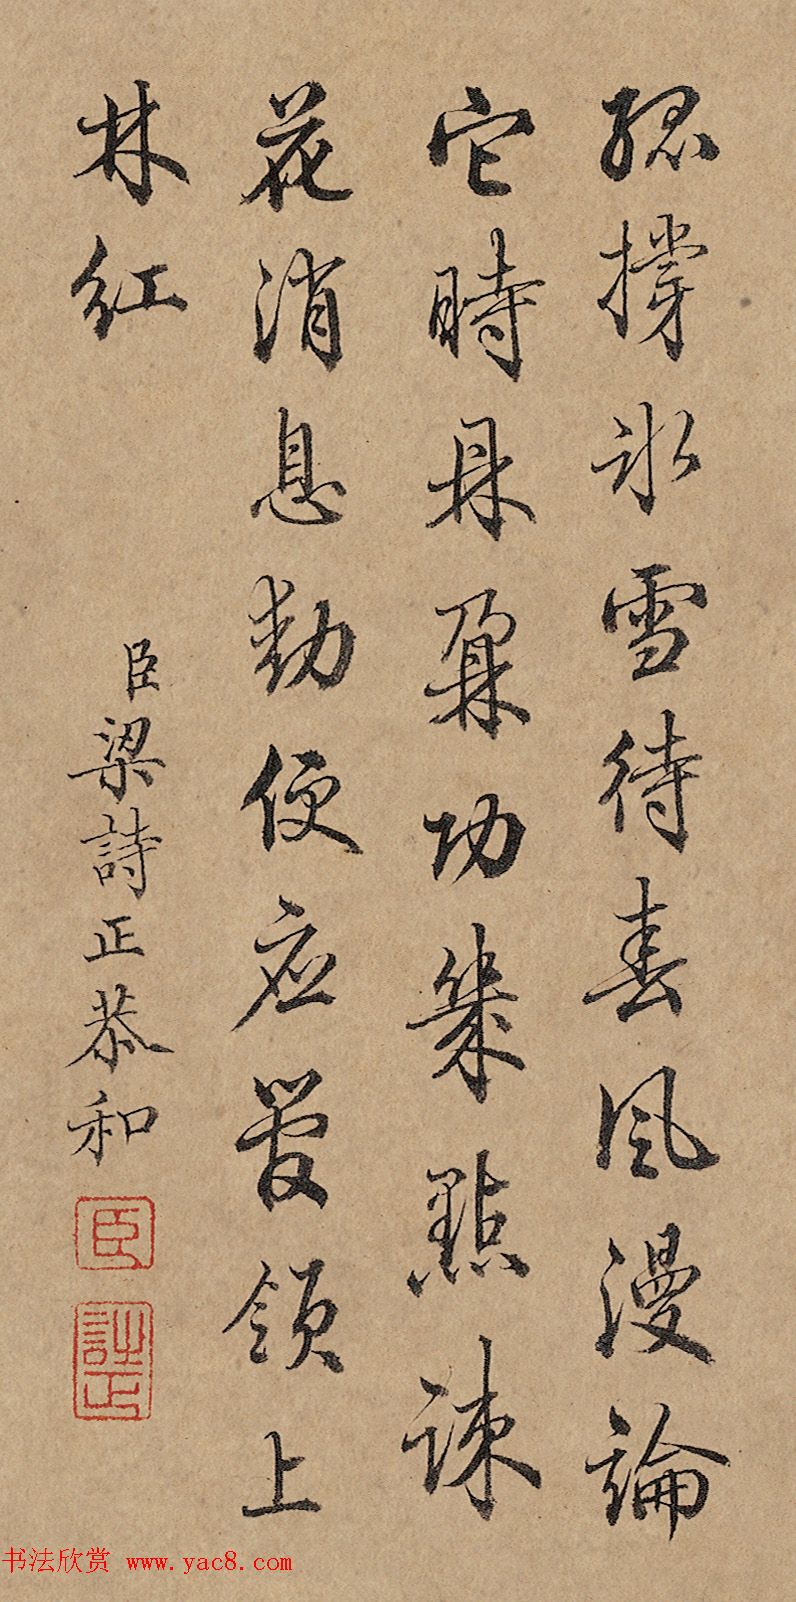 孤撐冰雪待春風漫論
它時鼎鼐功幾點疎
花消息動便應管領上
林紅
臣梁詩正恭和
臣
詩正
书法欣赏 www.yac8.com